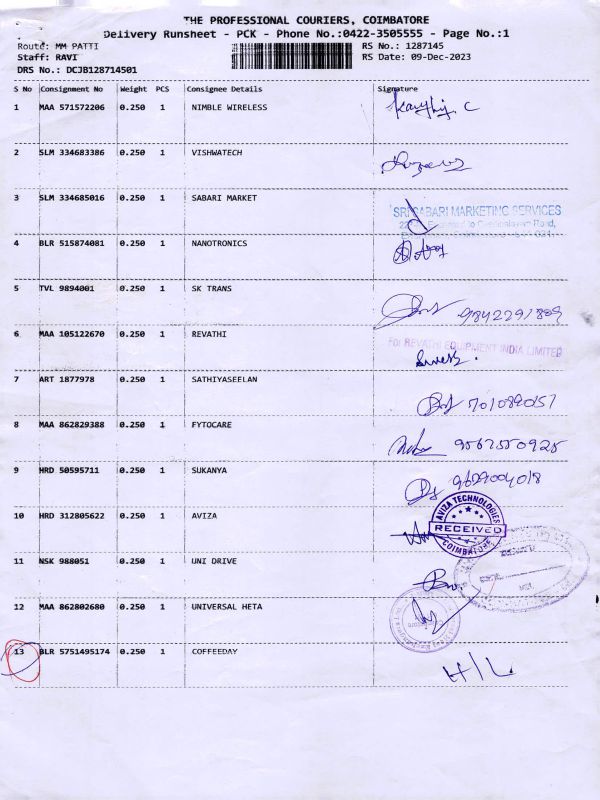 THE PROFESSIONAL COURIERS, COIMBATORE
Delivery Runsheet - PCK - Phone No.:0422-3505555 - Page No.:1
Route: MM PATTI
RS No.: 1287145
Staff: RAVI
RS Date: 09-Dec-2023
DRS No.: DCJB128714501
S No Consignment No Weight PCS Consignee Details Signature
1 MAA 571572206 0.250 1 NIMBLE WIRELESS
2 SLM 334683386 0.250 1 VISHWATECH
3 SLM 334685016 0.250 1 SABARI MARKET
SRI SABARI MARKETING SERVICES
4 BLR 515874081 0.250 1 NANOTRONICS
5 TVL 9894001 0.250 1 SK TRANS
9842291809
6 MAA 105122670 0.250 1 REVATHI
For REVATHI EQUIPMENT INDIA LIMITED
7 ART 1877978 0.250 1 SATHIYASEELAN
8 MAA 862829388 0.250 1 FYTOCARE
9 HRD 50595711 0.250 1 SUKANYA
10 HRD 312805622 0.250 1 AVIZA
AVIZA TECHNOLOGIES
RECEIVED
COIMBATORE
11 NSK 988051 0.250 1 UNI DRIVE
12 MAA 862802680 0.250 1 UNIVERSAL HETA
13 BLR 5751495174 0.250 1 COFFEEDAY